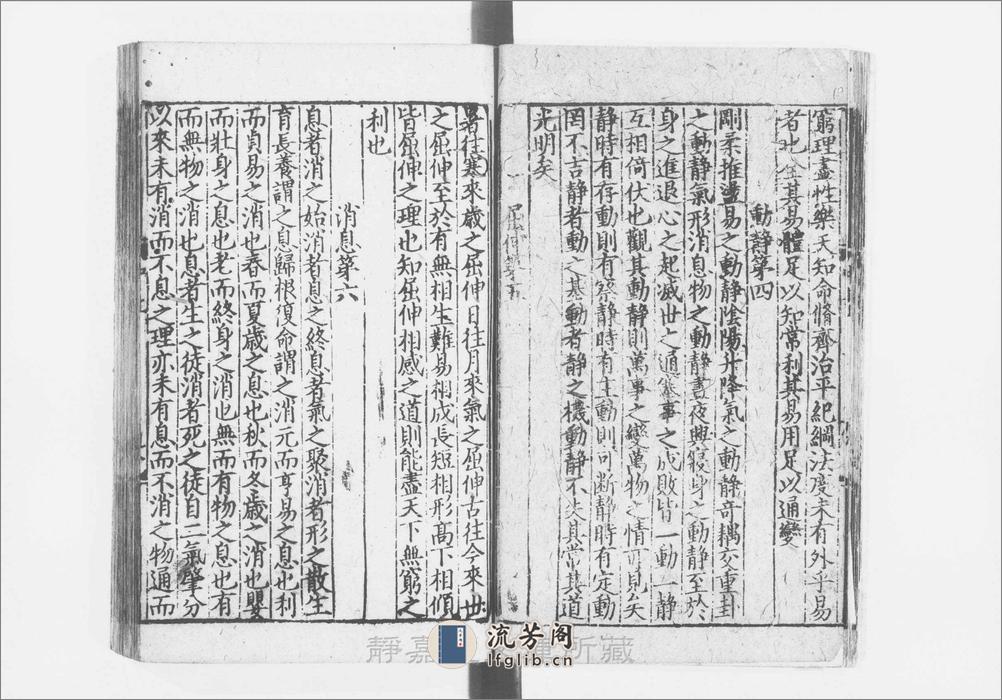 窮理盡性樂天知命脩齊治平紀綱法度未有外乎易
者也全其易體足以知常利其易用足以通變
動靜第四
剛柔推盪易之動靜陰陽升降氣之動靜奇耦交重卦
之動靜氣形消息物之動靜晝夜興寢身之動靜至於
身之進退心之起滅世之通塞事之成敗皆一動一靜
互相倚伏也觀其動靜則萬事之變萬物之情可見矣
靜時有存動則有察靜時有主動則可斷靜時有定動
罔不吉靜者動之基動者靜之機動靜不失其常其道
光明矣
屈伸第五
暑往寒來歲之屈伸日往月來氣之屈伸古往今來世
之屈伸至於有無相生難易相成長短相形高下相傾
皆屈伸之理也知屈伸相感之道則能盡天下無窮之
利也
消息第六
息者消之始消者息之終息者氣之聚消者形之散生
育長養謂之息歸根復命謂之消元而亨易之息也利
而貞易之消也春而夏歲之息也秋而冬歲之消也嬰
而壯身之息也老而終身之消也無而有物之息也有
而無物之消也息者生之徒消者死之徒自二氣肇分
以來未有消而不息之理亦未有息而不消之物通而
流芳阁
lfglib.cn
靜嘉
所藏